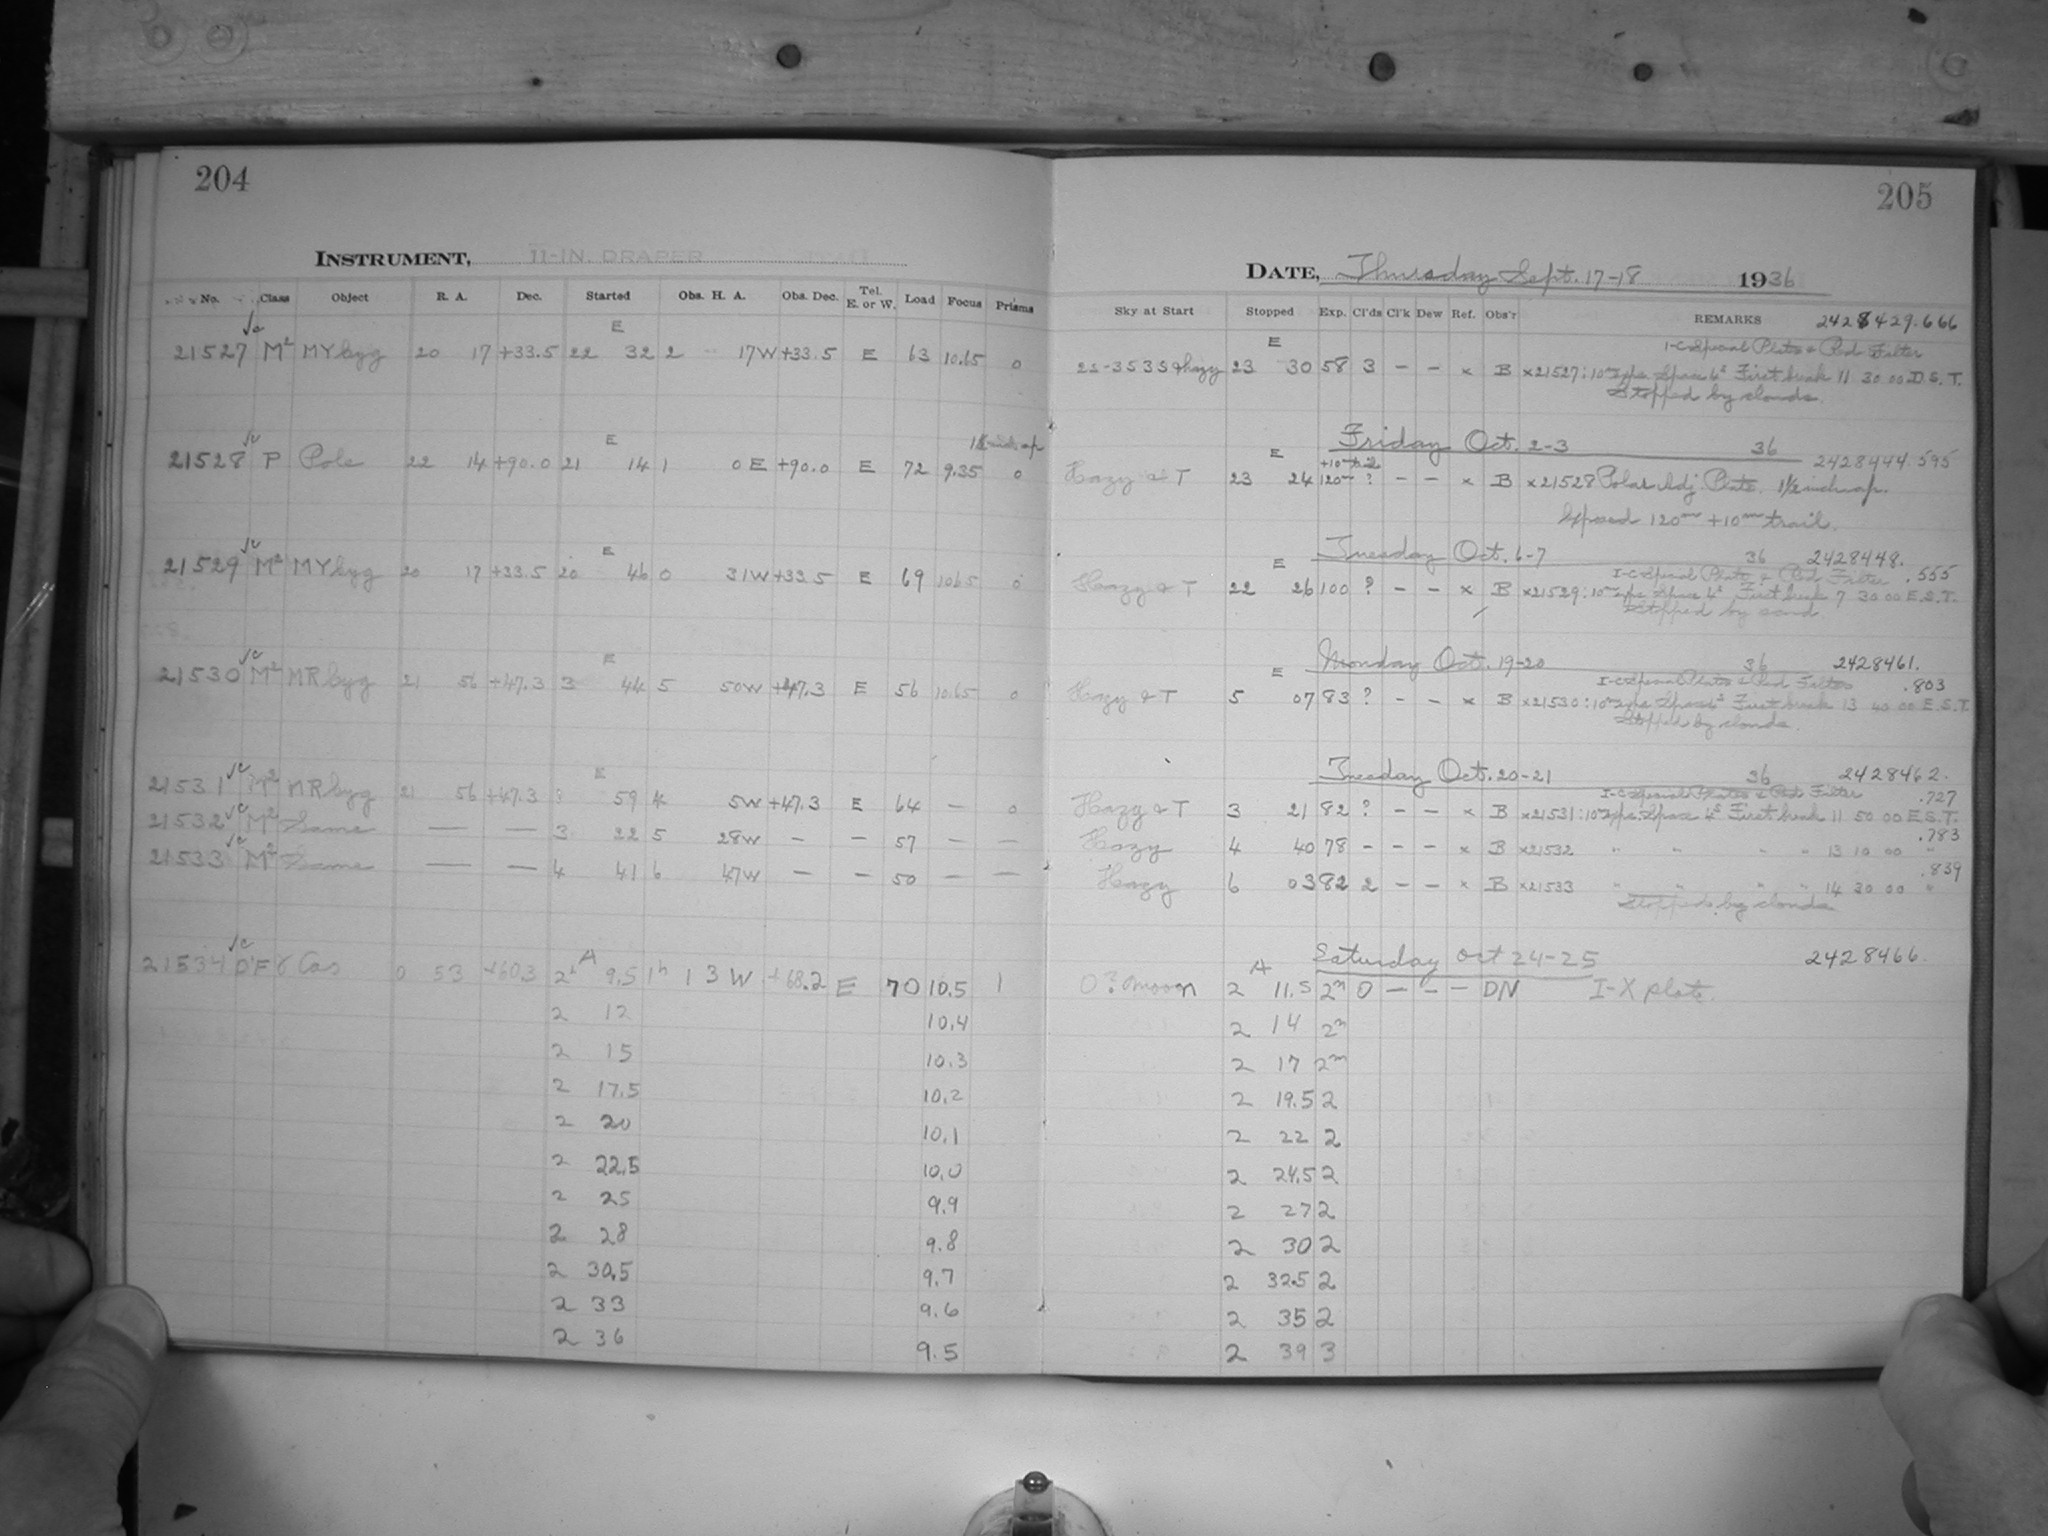 204
INSTRUMENT, 11-IN. DRAPER
No. Class Object R. A. Dec. Started Obs. H. A. Obs. Dec. Tel. E. or W. Load Focus Prisms
E
21527 M² MY Cyg 20 17 +33.5 22 32 2 17W +33.5 E 63 10.65 0
E
21528 P Pole 22 14 +90.0 21 14 1 0 E +90.0 E 72 9.35 0
E
21529 M² MY Cyg 20 17 +33.5 20 46 0 31W +33.5 E 69 10.65 0
E
21530 M² MR Cyg 21 56 +47.3 3 44 5 50W +47.3 E 56 10.65 0
E
21531 M² MR Cyg 21 56 +47.3 59 4 5W +47.3 E 64 — 0
21532 M² Same — — 3 22 5 28W — — 57 — —
21533 M² Same — — 4 41 6 47W — — 50 — —
A
21534 D'F γ Cas 0 53 +60.3 2h 9.5 1h 13 W +68.2 E 70 10.5 1
2 12 10.4
2 15 10.3
2 17.5 10.2
2 20 10.1
2 22.5 10.0
2 25 9.9
2 28 9.8
2 30.5 9.7
2 33 9.6
2 36 9.5
205
DATE, Thursday Sept. 17-18 1936
Sky at Start Stopped Exp. Cl'ds Cl'k Dew Ref. Obs'r REMARKS 2428429.666
I-C Special Plate & Red Filter
E
23 30 58 3 — — x B x21527: 10m exps. Space 4s First break 11 30 00 D.S.T.
Stopped by clouds.
Friday Oct. 2-3 36 2428444.595
E +10m trail
Hazy & T 23 24 120m ? — — x B x21528 Polar Adj. Plate. 1½ inch ap.
Exposed 120m +10m trail.
Tuesday Oct. 6-7 36 2428448.
I-C Special Plate & Red Filter .555
E
Hazy & T 22 26 100 ? — — x B x21529: 10m exps. Space 4s First break 7 30 00 E.S.T.
Stopped by
Monday Oct. 19-20 36 2428461.
I-C Special Plate & Red Filter .803
E
Hazy & T 5 07 83 ? — — x B x21530: 10m exps. Space 4s First break 13 40 00 E.S.T.
Stopped by clouds.
Tuesday Oct. 20-21 36 2428462.
I-C Special Plates & Red Filter .727
Hazy & T 3 21 82 ? — — x B x21531: 10m exps. Space 4s First break 11 50 00 E.S.T.
.783
Hazy 4 40 78 — — — x B x21532 " " " " 13 10 00 "
.839
Hazy 6 03 82 2 — — x B x21533 " " " " 14 30 00 "
Stopped by clouds
Saturday Oct 24-25 2428466.
A
0? moon 2 11.5 2m 0 — — — DN I-X plate.
2 14 2m
2 17 2m
2 19.5 2
2 22 2
2 24.5 2
2 27 2
2 30 2
2 32.5 2
2 35 2
2 39 3